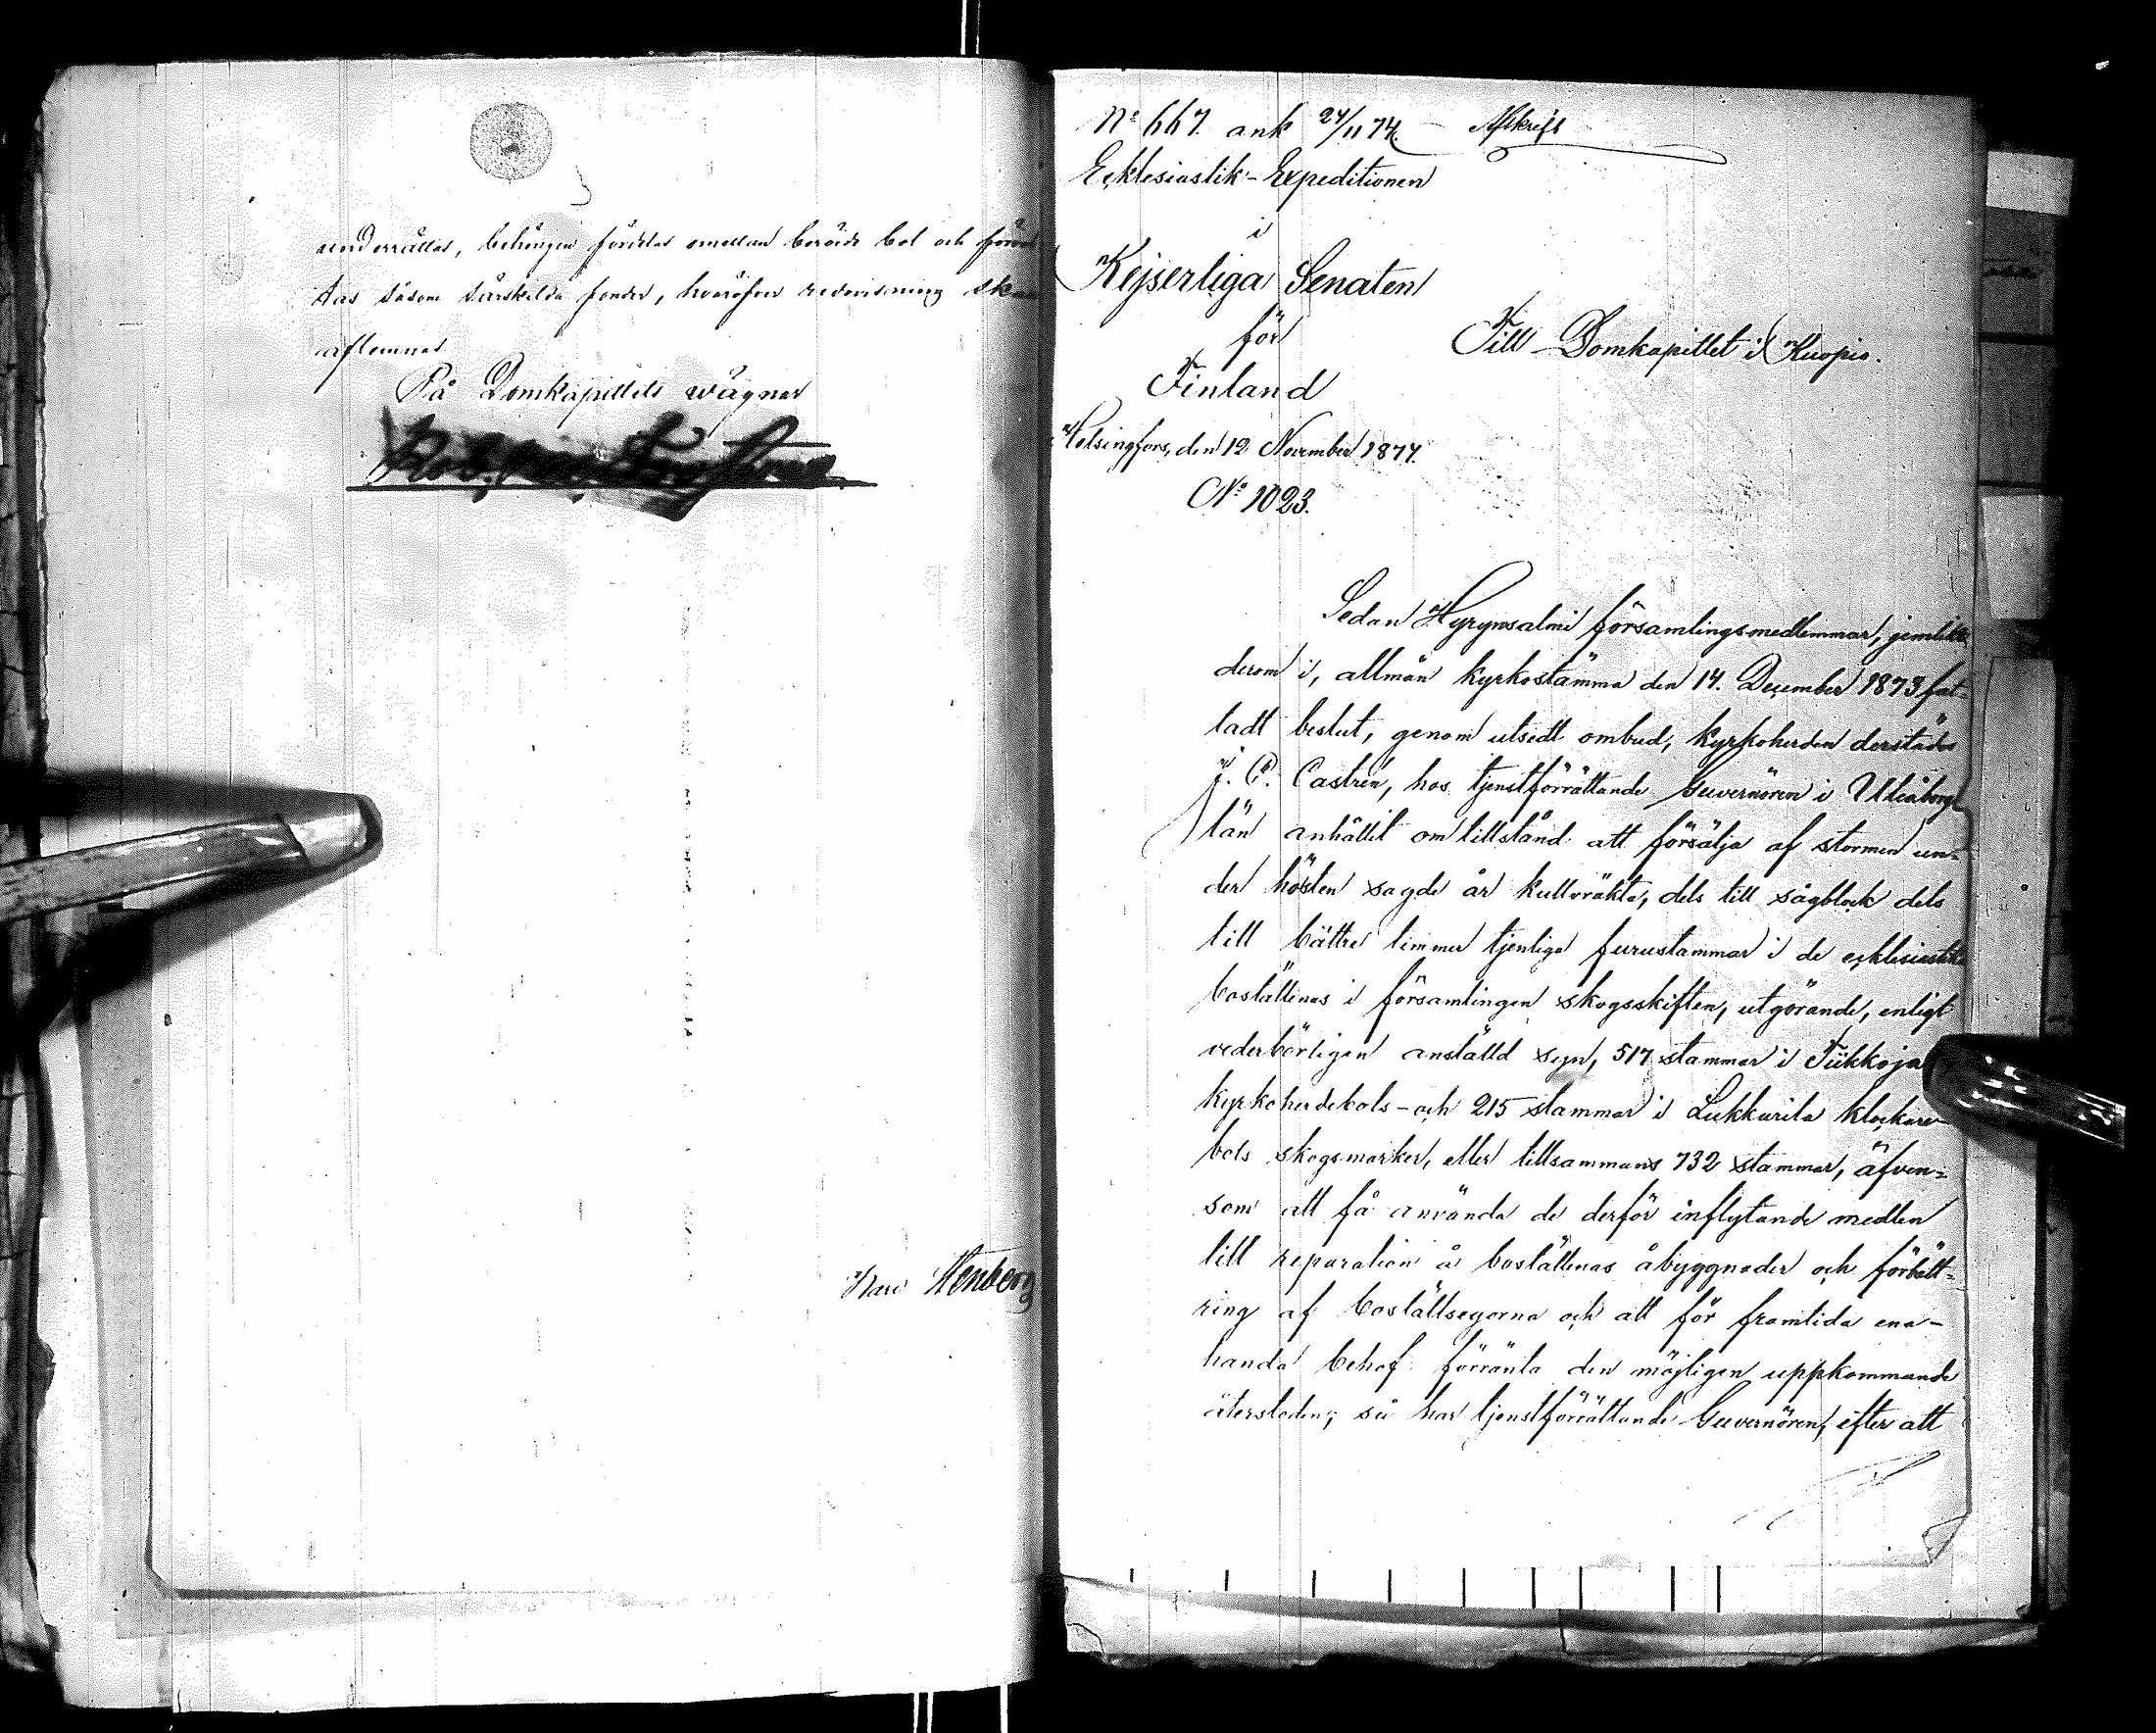 underrättas, behörigen fördelas emellan berörde bol och
tas såsom särskilda fonder, hvaröfver redovisning
aflemnas
På Domkapitlets wägnar
Stenberg
No 667. ank 24/11 74. Afskrift
Ecklesiastik-Expeditionen
i
Kejserliga Senaten
för
Finland
Till Domkapitlet i Kuopio.
Helsingfors, den 12 November 1874.
No 1023.
Sedan Hyrynsalmi församlingsmedlemmar, jemlikt
derom i, allmän kyrkostämma den 14. December 1873 fat-
tadt beslut, genom utsedt ombud, kyrkoherden derstädes
J. C. Castrén, hos tjenstförrättande Guvernören i Uleåborgs
län anhållit om tillstånd att försälja af stormen un-
der hösten sagde år kullvräkta, dels till sågblock dels
till bättre timmer tjenliga furustammar i de ecklesiastika
boställenas i församlingen skogsskiften, utgörande, enligt
vederbörligen anstäld syn, 517 stammar i Tiikkoja
kyrkoherdebols- och 215 stammar i Lukkarila klockare
bols skogsmarker, eller tillsammans 732 stammar, äfven-
som att få använda de derför inflytande medlen
till reparation å boställenas åbyggnader och förbätt-
ring af boställsegorna och att för framtida ena-
handa behof förränta den möjligen uppkommande
återstoden; så har tjenstförrättande Guvernören, efter att